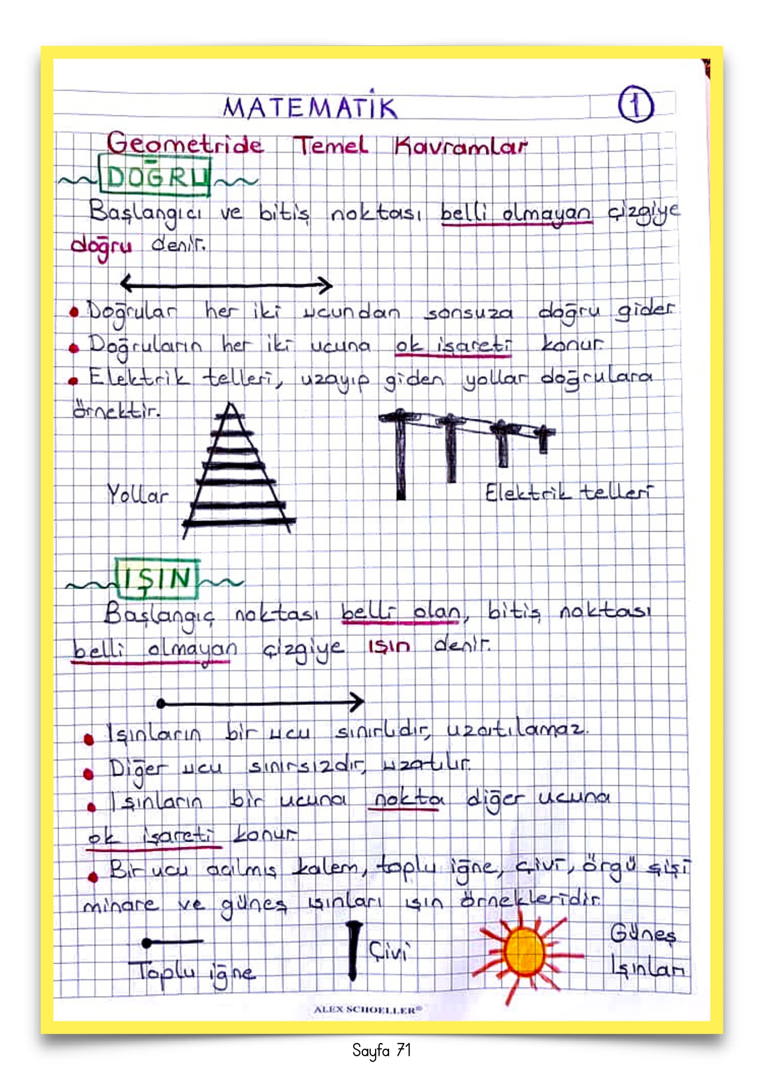 MATEMATİK
1
Geometride Temel Kavramlar
DOĞRU
Başlangıcı ve bitiş noktası belli olmayan çizgiye
doğru denir.
• Doğrular her iki ucundan sonsuza doğru gider
• Doğruların her iki ucuna ok işareti konur
• Elektrik telleri, uzayıp giden yollar doğrulara
örnektir.
Yollar
Elektrik telleri
IŞIN
Başlangıç noktası belli olan, bitiş noktası
belli olmayan çizgiye ışın denir.
• Işınların bir ucu sınırlıdır, uzatılamaz.
• Diğer ucu sınırsızdır, uzatılır.
• Işınların bir ucuna nokta diğer ucuna
ok işareti konur
• Bir ucu açılmış kalem, toplu iğne, çivi, örgü şişi
minare ve güneş ışınları ışın örnekleridir.
Toplu iğne
Çivi
Güneş
Işınları
ALEX SCHOELLER®
Sayfa 71